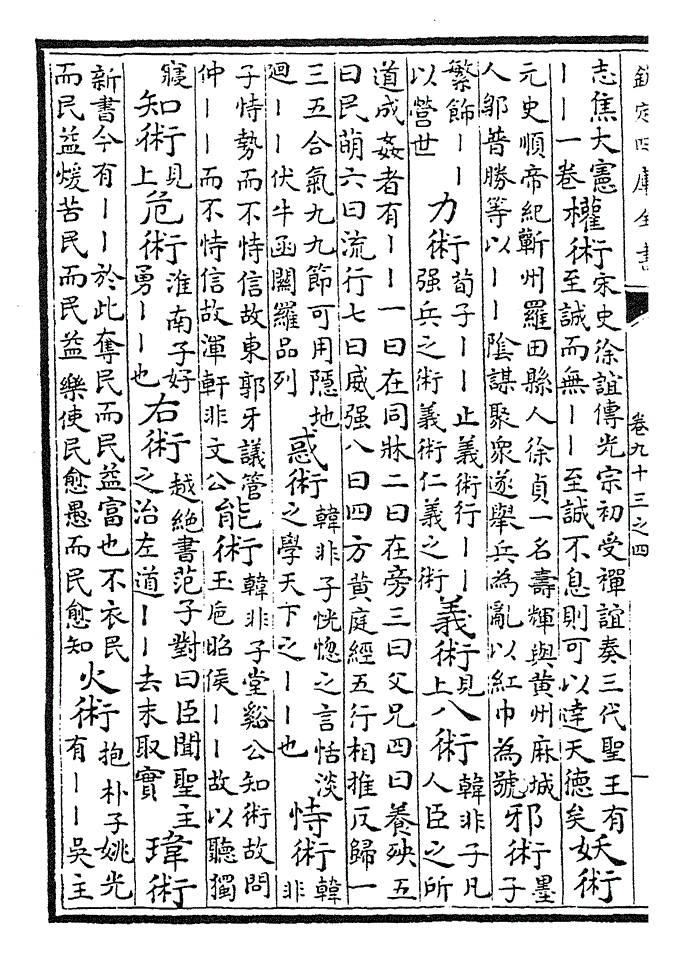 欽定四庫全書
卷九十三之四
一
志焦大憲
——一卷
權術
宋史徐誼傳光宗初受禪誼奏三代聖王有
至誠而無——至誠不息則可以達天德矣
妖術
元史順帝紀蘄州羅田縣人徐貞一名壽輝與黄州麻城
人鄒普勝等以——陰謀聚衆遂舉兵為亂以紅巾為號
邪術
墨
子
繁飾——
以營世
力術
荀子——止義術行——
强兵之術義術仁義之術
義術
見
上
八術
韓非子凡
人臣之所
道成姦者有——一曰在同牀二曰在旁三曰父兄四曰養殃五
曰民萌六曰流行七曰威强八曰四方黄庭經五行相推反歸一
三五合氣九九節可用隱地
廻——伏牛函關羅品列
惑術
韓非子恍惚之言恬淡
之學天下之——也
恃術
韓
非
子恃勢而不恃信故東郭牙議管
仲——而不恃信故渾軒非文公
能術
韓非子堂谿公知術故問
玉巵昭侯——故以聽獨
寢
知術
見
上
危術
淮南子好
勇——也
右術
越絶書范子對曰臣聞聖主
之治左道——去末取實
瑋術
新書今有——於此奪民而民益富也不衣民
而民益煖苦民而民益樂使民愈愚而民愈知
火術
抱朴子姚光
有——吳主